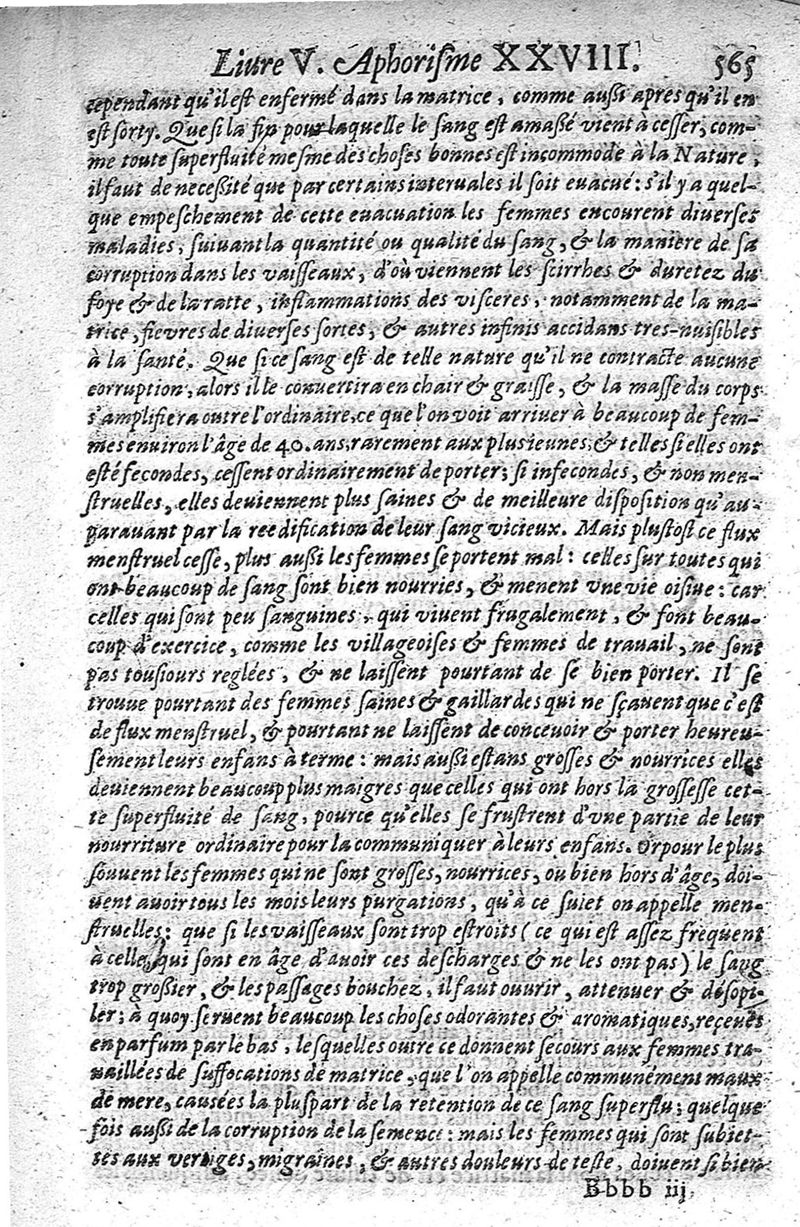 Liure V. Aphorisme XXVIII. 565
cependant qu'il est enfermé dans la matrice, comme aussi apres qu'il en
est sorty. Que si la fin pour laquelle le sang est amassé vient à cesser, com-
me toute superfluité mesme des choses bonnes est incommode à la Nature,
il faut de necessité que par certains interuales il soit euacué : s'il y a quel-
que empeschement de cette euacuation les femmes encourent diuerses
maladies, suiuant la quantité ou qualité du sang, & la maniere de sa
corruption dans les vaisseaux, d'où viennent les scirrhes & duretez du
foye & de la ratte, inflammations des visceres, notamment de la ma-
trice, fievres de diuerses sortes, & autres infinis accidans tres-nuisibles
à la santé. Que si ce sang est de telle nature qu'il ne contracte aucune
corruption, alors il le conuertira en chair & graisse, & la masse du corps
s'amplifiera outre l'ordinaire, ce que l'on voit arriuer à beaucoup de fem-
mes enuiron l'âge de 40. ans, rarement aux plus ieunes, & telles si elles ont
esté fecondes, cessent ordinairement de porter ; si infecondes, & non men-
struelles, elles deuiennent plus saines & de meilleure disposition qu'au-
parauant par la reedification de leur sang vicieux. Mais plustost ce flux
menstruel cesse, plus aussi les femmes se portent mal : celles sur toutes qui
ont beaucoup de sang sont bien nourries, & menent vne vie oisiue : car
celles qui sont peu sanguines, qui viuent frugalement, & font beau-
coup d'exercice, comme les villageoises & femmes de trauail, ne sont
pas tousiours reglées, & ne laissent pourtant de se bien porter. Il se
trouue pourtant des femmes saines & gaillardes qui ne sçauent que c'est
de flux menstruel, & pourtant ne laissent de conceuoir & porter heureu-
sement leurs enfans à terme : mais aussi estans grosses & nourrices elles
deuiennent beaucoup plus maigres que celles qui ont hors la grossesse cet-
te superfluité de sang, pource qu'elles se frustrent d'vne partie de leur
nourriture ordinaire pour la communiquer à leurs enfans. Or pour le plus
souuent les femmes qui ne sont grosses, nourrices, ou bien hors d'âge, doi-
uent auoir tous les mois leurs purgations, qu'à ce suiet on appelle men-
struelles : que si les vaisseaux sont trop estroits ( ce qui est assez frequent
à celles qui sont en âge d'auoir ces descharges & ne les ont pas ) le sang
trop grossier, & les passages bouchez, il faut ouurir, attenuer & désopi-
ler ; à quoy seruent beaucoup les choses odorantes & aromatiques, reçeues
en parfum par le bas, lesquelles outre ce donnent secours aux femmes tra-
uaillées de suffocations de matrice, que l'on appelle communément maux
de mere, causées la pluspart de la retention de ce sang superflu ; quelque
fois aussi de la corruption de la semence : mais les femmes qui sont subiet-
tes aux vertiges, migraines, & autres douleurs de teste, doiuent si bien
Bbbb iij